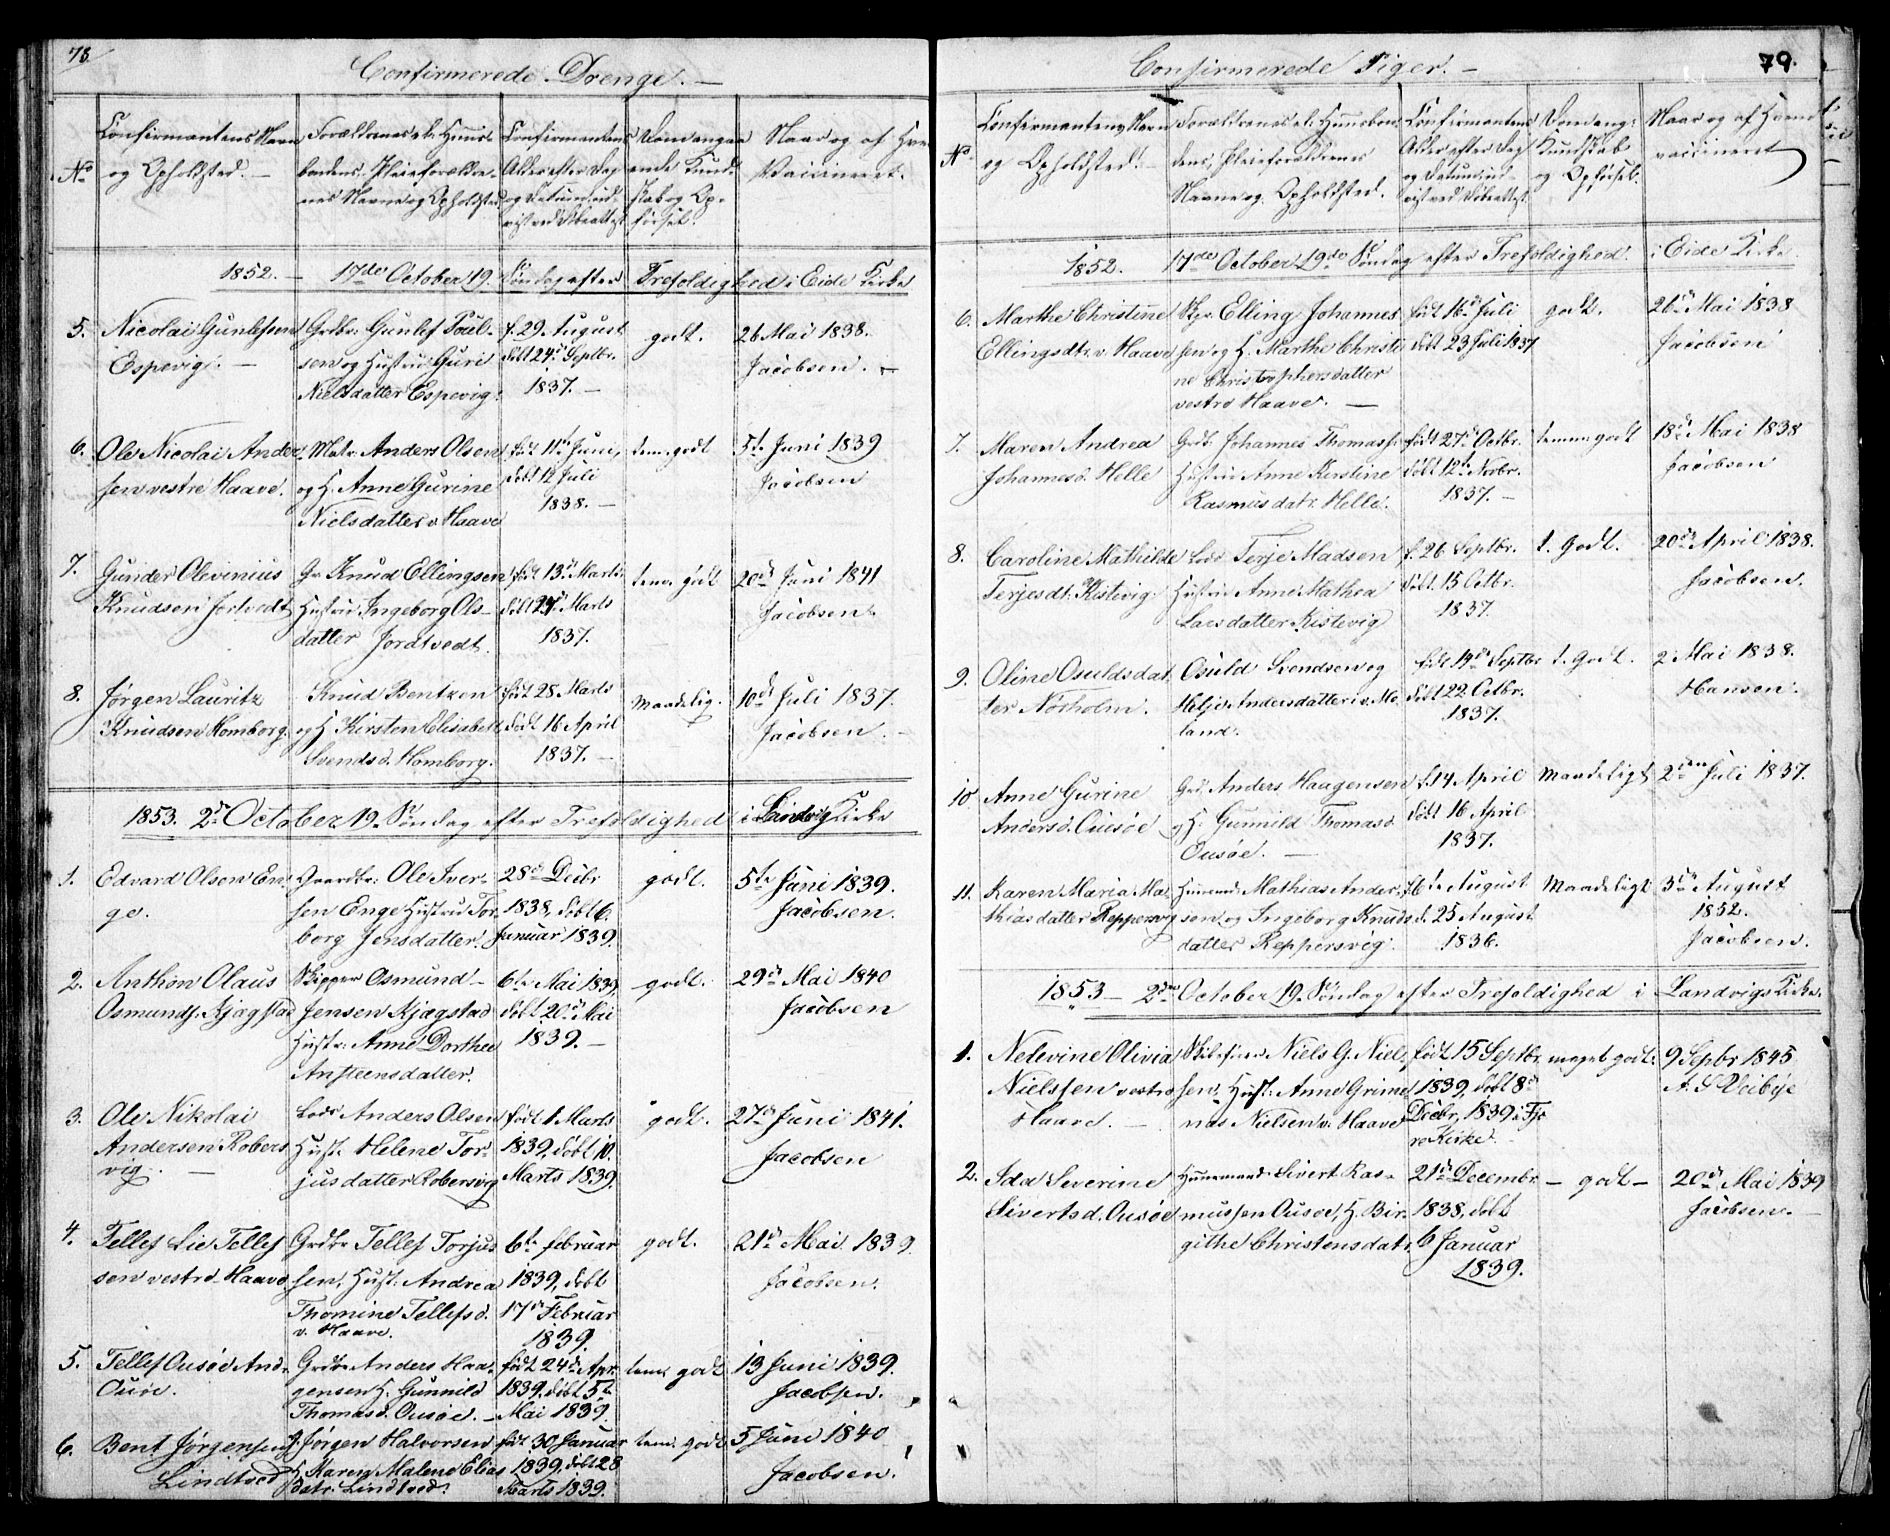 78
Confirmerede Drenge. —
No
Confirmantens Navn
og Opholdsted. —
Forældrenes el. Huus-
bondens, Pleieforældre-
nes Navne og Opholdsted
Confirmantens
Alder efter Dag
og Datum ud-
vist ved Døbeattest
Dom angaa
ende Kund-
skab og Op-
førsel.
Naar og af Hvem
Vaccineret.
1852. — 17de October 19de Søndag efter Trefoldighed i Eide Kirke
5. Nicolai Gunlefsen
Espevig. —
Grdbr. Gunlef Poul-
sen og Hustru Guri
Nielsdatter Espevig.
f. 29. August
døbt 24de Septbr.
1837. —
godt.
26 Mai 1838.
Jacobsen. —
6. Ole Nicolai Ander
sen vestre Haave.
Matr. Anders Olsen
og H. Anne Gurine
Nielsdatter v. Haave
født 11te Juni,
døbt 12 Juli
1838. —
tem. godt
5te Juni 1839
Jacobsen
7. Gunder Olevinius
Knudsen Jortvedt
Gr Knud Ellingsen
Hustru Ingeborg Ols-
datter Jordtvedt.
født 13de Marts
døbt 27de Marts
1837.
tem. godt
20de Juni 1841
Jacobsen.
8. Jørgen Lauritz
Knudsen Homborg.
Knud Bentzen
og H. Kirsten Elisabeth
Svendsd. Homborg.
født 28. Marts
døbt 16 April
1837. —
Maadelig.
10de Juli 1837.
Jacobsen. —
1853. 2de October 19de Søndag efter Trefoldighed i Landvig Kirke
1. Edvard Olsen En-
ge.
Gaardbr. Ole Iver-
sen Enge Hustru Tor-
borg Jensdatter.
28de Decbr
1838, døbt 6.
Januar 1839.
godt.
5te Juni 1839.
Jacobsen.
2. Anthon Olaus
Osmunds. Kjægstad
Skipper Osmund
Jensen Kjægstad
Hustr. Anne Dorthee
Ansteensdatter.
6te Mai 1839,
døbt 20de Mai
1839. —
godt.
29de Mai 1840
Jacobsen
3. Ole Nikolai
Andersen Robers
vig. —
Lods Anders Olsen
Hust. Helene Tor-
jusdatter Robersvig
født 1 Marts
1839, døbt 10.
Marts 1839.
godt.
27de Juni 1841.
Jacobsen
4. Tellef Lie Tellef
sen vestre Haave
Grdbr Tellef Torjus
sen, Hust. Andrea
Thomine Tellefsd.
v. Haave.
6te februar
1839, døbt
17de Februar
1839.
godt.
21de Mai 1839.
Jacobsen.
5. Tellef Ousøe And.
Ousøe.
Grdbr Anders Haa-
gensen H. Gunnild
Thomasd. Ousøe. —
født 24de Apr.
1839. døbt 5te
Mai 1839.
tem. godt
13 Juni 1839.
Jacobsen.
6. Bent Jørgensen
Lindtved
Jørgen Halvorsen
H. Maren Malene Elias
datr. Lindtved.
født 30 Januar
1839, døbt 28
Marts 1839.
tem. godt
5 Juni 1840
Jacobsen.
79.
Confirmerede Piger. —
No
Confirmantens Navn
og Opholdsted. —
Forældrenes el. Huusbon-
dens, Pleieforældrenes
Navne og Opholdsted.
Confirmantens
Alder efter Dag
og Datum ud-
vist ved Døbeattest
Dom ang:
Kundskab
og Opførsel.
Naar og af Hvem
vaccineret
1852. 17de October 19de Søndag efter Trefoldighed i Eide Kirke
6. Marthe Christine
Ellingsdtr. v. Haave
Elling Johannes
sen og H. Marthe Christi
ne Christophersdatter
vestre Haave. —
født 16de Juli
døbt 23 Juli 1837
godt.
26de Mai 1838
Jacobsen
7. Maren Andrea
Johannesd. Helle
Grdb. Johannes Thomass.
Hustru Anne Kirstine
Rasmusdatr. Helle.
født 27de Octbr.
døbt 12te Novbr.
1837. —
temm godt
18de Mai 1838
Jacobsen
8. Caroline Mathilde
Terjesdt. Kistevig.
Lods Terje Madsen
Hustru Anne Mathea
Larsdatter Kistevig
f. 26 Septbr.
døbt. 15 Octbr.
1837.
t. Godt.
20de April 1838.
Jacobsen.
9. Oline Osuldsdat-
ter Nørholm.
Osuld Svendsen og
Helje Andersdatter i v. Mo-
land.
født 19de Septbr
døbt 22. Octbr.
1837.
t. Godt.
2 Mai 1838.
Hansen.
10 Anne Gurine
Andersd. Ousøe
Grd. Anders Haagensen
og H. Gunnild Thomasd
Ousøe. —
f. 14 April
døbt 16 April
1837.
Maadeligt
2den Juli 1837.
11. Karen Maria Ma-
thiasdatter Reppersvig
Huusmd. Mathias Ander-
sen og Ingeborg Knuds
datter Reppersvig.
f. 6te August
d. 25 August
1836.
Maadeligt
3de August
1852.
Jacobsen.
1853 — 2den October 19de Søndag efter Trefoldighed i Landvigs Kirke.
1. Netevine Olivia
Nielssen vestre
Haave. —
Niels G. Niel-
sen, Hust. Anne Grime
nas Nielsen v. Haave
født 15 Septbr
1839, døbt 8de
Decbr, 1839 i Fjæ
re Kirke.
meget godt.
9 Sepbr 1845
2. Ida Severine
Sivertsd. Ousøe
Huusmand Sivert Ras-
mussen Ousøe, H. Bir-
githe Christensdatr.
21de Decembr
1838, døbt
6 Januar
1839.
— godt —
20de Mai 1839
Jacobsen.